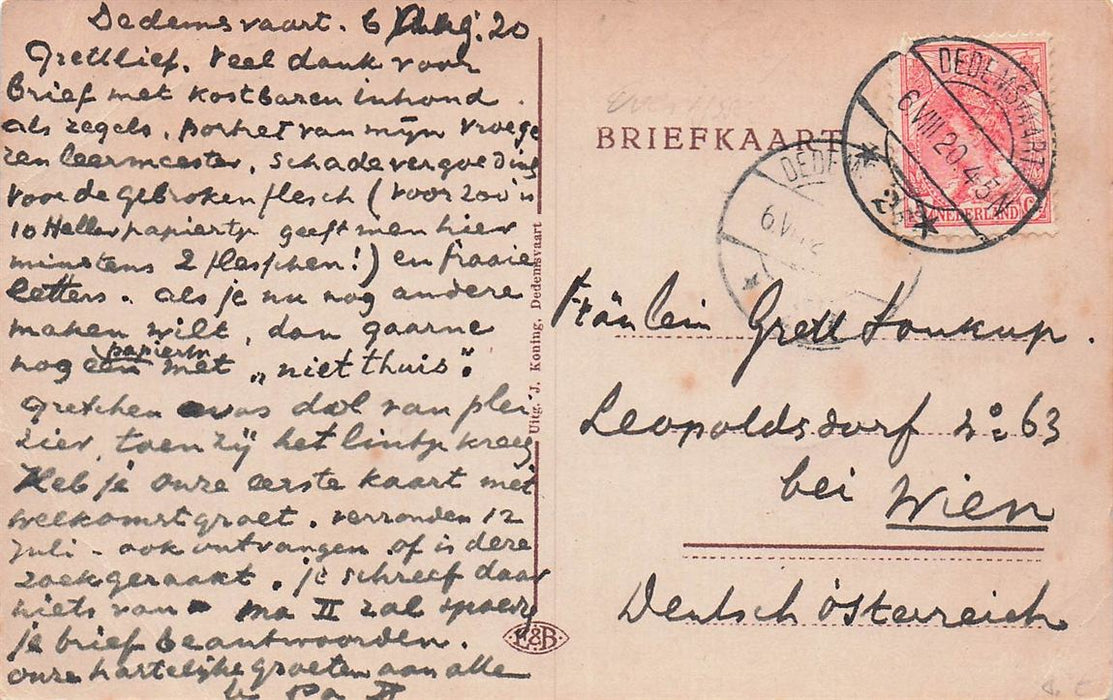 Dedemsvaart. 6 Aug. '20
Gretllief. Veel dank voor
brief met kostbaren inhoud.
als zegels, portret van mijn vroege
ren leermeester, schadevergoeding
voor de gebroken flesch (voor zoo'n
10 Heller papiertje geeft men hier
minstens 2 flesschen!) en fraaie
letters. als je nu nog andere
maken wilt, dan gaarne
papieren
nog een met „niet thuis".
Gretchen was dol van plei
zier, toen zij het lintje kreeg
Heb je onze eerste kaart met
welkomstgroet. verzonden 12
juli - ook ontvangen of is deze
zoekgeraakt. je schreef daar
niets van Ma II zal spoedig
je brief beantwoorden.
onze hartelijke groeten aan alle
Pa II
Uitg. J. Koning, Dedemsvaart
E&B
BRIEFKAART
DEDEMSVAART
6 VIII 20 4-5 N
NEDERLAND
DEDEM
6.VIII
Fräulein Gretl Soukup.
Leopoldsdorf No 63
bei Wien
Deutsch österreich